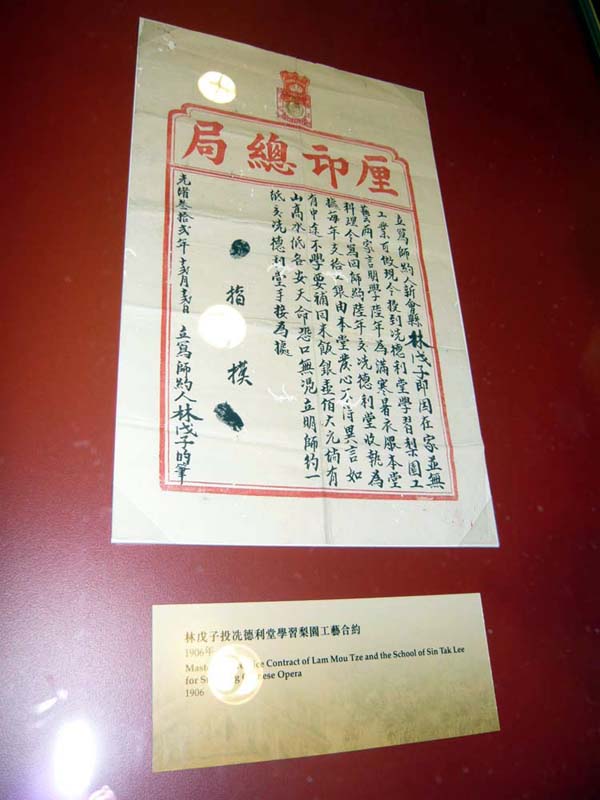 厘印總局
立寫師約人新會縣林戊子即因在家並無
工業可做現今投到冼德利堂學習梨園工
藝兩家言明學陸年為滿寒暑衣服本堂
料理今寫回師約陸年交冼德利堂收執為
據每年支拾工銀由本堂發心不得異言如
有中途不學要補回米飯銀壹佰大元倘有
山高水低各安天命恐口無凭立明師約一
紙交冼德利堂手接為據
指模
光緒叁拾弍年 月 日 立寫師約人林戊子的筆
林戊子投冼德利堂學習梨園工藝合約
1906年
Contract of Lam Mou Tze and the School of Sin Tak Lee
for Opera
1906